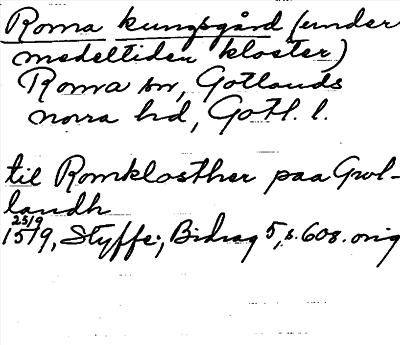 Roma kungsgård (under
medeltiden kloster)
Roma sn, Gotlands
norra hd, Gotl. l.
til Romklosther paa Gwl-
landh
25/9
1519, Styffe, Bidrag 5, s. 608. orig